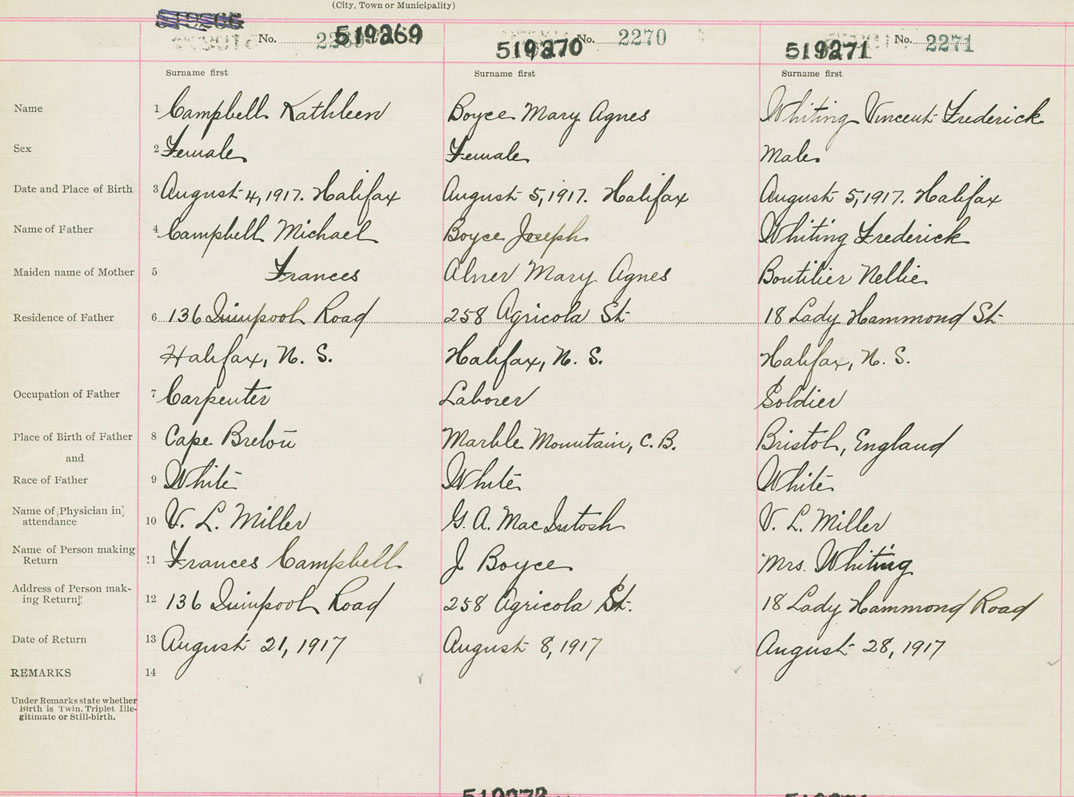 (City, Town or Municipality)
No. 519269
519270 No. 2270
519271 No. 2271
Surname first Surname first Surname first
Name 1 Campbell Kathleen Boyce Mary Agnes Whiting Vincent Frederick
Sex 2 Female Female Male
Date and Place of Birth 3 August 4, 1917. Halifax August 5, 1917. Halifax August 5, 1917. Halifax
Name of Father 4 Campbell Michael Boyce Joseph Whiting Frederick
Maiden name of Mother 5 Frances Mary Agnes Boutilier Nellie
Residence of Father 6 136 Quinpool Road 258 Agricola St. 18 Lady Hammond St.
Halifax, N. S. Halifax, N. S. Halifax, N. S.
Occupation of Father 7 Carpenter Laborer Soldier
Place of Birth of Father 8 Cape Breton Marble Mountain, C.B. Bristol, England
and
Race of Father 9 White White White
Name of Physician in attendance 10 V. L. Miller G. A. MacIntosh V. L. Miller
Name of Person making Return 11 Frances Campbell J Boyce Mrs. Whiting
Address of Person making Return 12 136 Quinpool Road 258 Agricola St. 18 Lady Hammond Road
Date of Return 13 August 21, 1917 August 8, 1917 August 28, 1917
REMARKS 14
Under Remarks state whether
Birth is Twin, Triplet Ille-
gitimate or Still-birth.